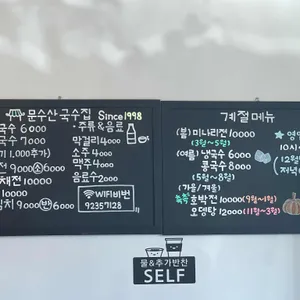 문수산 국수집 Since 1998
국수 6000
국수 8000
기 1,000추가)
전 9000(소)6000
채전 10000
10000
김치 9000(반)6000
•주류&음료•
막걸리 4000
소주 4000
맥주 4000
음료수 2000
WIFI비번
92357128
계절메뉴
(봄) 미나리전 10000
(3월~5월)
(여름) 냉국수 6000
콩국수 8000
(5월~8월)
(가을/겨울)
호박전 10000 (9월~1월)
오뎅탕 12000 (11월~3월)
10시
(12월
물&추가반찬
SELF